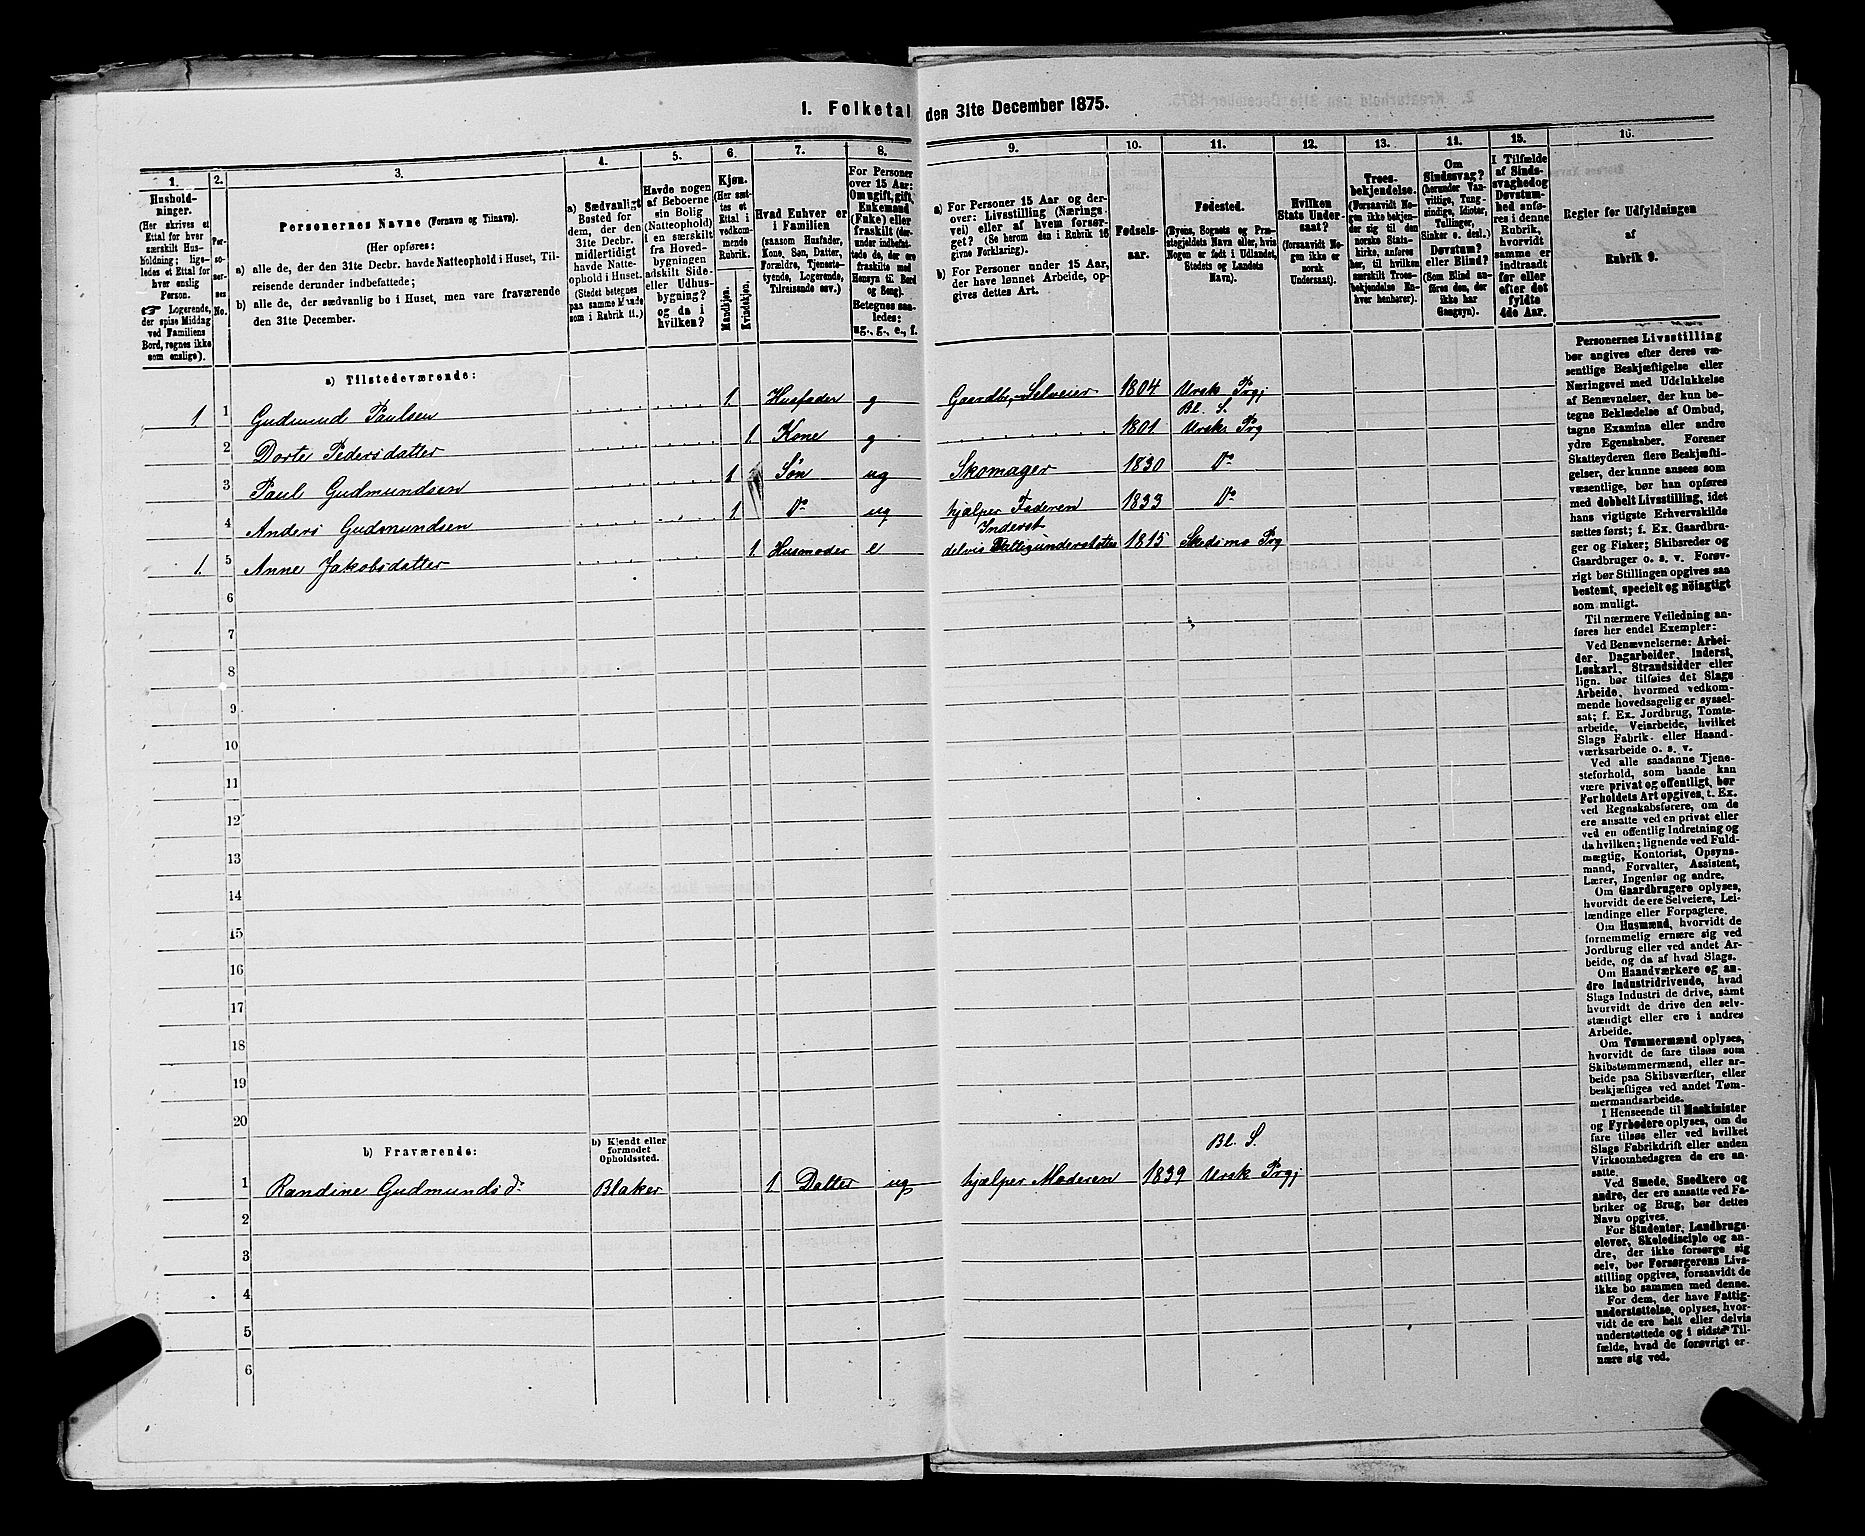 1. Folketal den 31te December 1875.
1.
Husholdninger.
(Her skrives et
Ettal for hver
særskilt Husholdning; ligeledes et Ettal for
hver enslig
Person.
☞ Logerende,
der spise Middag
ved Familiens
Bord, regnes ikke
som enslige).
2.
Personernes
No.
3.
Personernes Navne (Fornavn og Tilnavn).
(Her opføres:
a) alle de, der den 31te Decbr. havde Natteophold i Huset, Tilreisende derunder indbefattede;
b) alle de, der sædvanlig bo i Huset, men vare fraværende
den 31te December.
4.
a) Sædvanligt
Bosted for
dem, der den
31te Decbr.
midlertidigt
havde Natteophold i Huset.
(Stedet betegnes
paa samme Maade
som i Rubrik 11.)
5.
Havde nogen
af Beboerne
sin Bolig
(Natteophold)
i en særskilt
fra Hovedbygningen
adskilt Side-
eller Udhusbygning?
og da i
hvilken?
6.
Kjøn.
(Her sættes et
Ettal i
vedkommende
Rubrik.
Mandkjøn.
Kvindekjøn.
7.
Hvad Enhver er
i Familien
(saasom Husfader,
Kone, Søn, Datter,
Forældre, Tjenestetyende, Logerende,
Tilreisende osv.)
8.
For Personer
over 15 Aar:
Om ugift, gift,
Enkemand
(Enke) eller
fraskilt (derunder indbefattede de, der ere
fraskilte med
Hensyn til Bord
og Seng).
Betegnes saaledes:
ug., g., e., f.
9.
a) For Personer 15 Aar og derover: Livsstilling (Næringsvei) eller af hvem forsørget? (Se herom den i Rubrik 16
givne Forklaring).
b) For Personer under 15 Aar,
der have lønnet Arbeide, opgives dettes Art.
10.
Fødselsaar.
11.
Fødested.
(Byens, Sognets og Præstegjeldets Navn eller, hvis
Nogen er født i Udlandet,
Stedets og Landets
Navn).
12.
Hvilken
Stats Undersaat?
(forsaavidt Nogen ikke er
norsk
Undersaat).
13.
Troesbekjendelse.
(Forsaavidt Nogen ikke bekjender sig til den
norske Statskirke, anføres
her, til hvilken
særskilt Troesbekjendelse Enhver henhører).
14.
Om
Sindssvag?
(herunder Vanvittige, Tungsindige, Idioter,
Tullinger,
Sinker o. desl.)
Døvstum?
eller Blind?
(Som Blind anføres den, der
ikke har
Gangsyn).
15.
I Tilfælde
af Sindssvaghed og
Døvstumhed anføres i denne
Rubrik,
hvorvidt
samme er
indtraadt
før eller
efter det
fyldte
4de Aar.
16.
Regler for Udfyldningen
af
Rubrik 9.
a) Tilstedeværende:
1 1 Gudmund Paulsen 1. Husfader g Gaardbr, Selveier 1804 Ursk Prgj
Bl. S.
2 Dorte Pedersdatter 1. Kone g 1801 Ursk Prg
3 Paul Gudmundsen 1 Søn ug Skomager 1830 Do
4 Anders Gudmundsen 1. Do ug hjælper Faderen 1833 Do
Inderst
1. 5 Anne Jakobsdatter 1. Husmoder e delvis Fattigunderstøttet 1815 Skedsmo Prg
6
7
8
9
10
11
12
13
14
15
16
17
18
19
20
b) Fraværende:
b) Kjendt eller
formodet
Opholdssted.
Bl. S.
1 Randine Gudmundsdr Blaker 1 Datter ug hjælper Moderen 1839 Ursk Prgj
2
3
4
5
6
Personernes Livsstilling
bør angives efter deres væsentlige Beskjæftigelse eller
Næringsvei med Udelukkelse
af Benævnelser, der kun betegne Beklædelse af Ombud,
tagne Examina eller andre
ydre Egenskaber. Forener
Skatteyderen flere Beskjæftigelser, der kunne ansees som
væsentlige, bør han opføres
med dobbelt Livsstilling, idet
hans vigtigste Erhvervskilde
sættes først; f. Ex. Gaardbruger og Fisker; Skibsreder og
Gaardbruger o. s. v. Forøvrigt bør Stillingen opgives saa
bestemt, specielt og nøiagtigt
som muligt.
Til nærmere Veiledning anføres her endel Exempler:
Ved Benævnelserne: Arbeider, Dagarbeider, Inderst,
Løskarl, Strandsidder eller
lign. bør tilføies det Slags
Arbeide, hvormed vedkommende hovedsagelig er sysselsat; f. Ex. Jordbrug, Tomtearbeide, Veiarbeide, hvilket
Slags Fabrik- eller Haandværksarbeide o. s. v.
Ved alle saadanne Tjenesteforhold, som baade kan
være privat og offentligt, bør
Forholdets Art opgives, t. Ex.
ved Regnskabsførere, om de
ere ansatte ved en privat eller
ved en offentlig Indretning og
da hvilken; lignende ved Fuldmægtig, Kontorist, Opsynsmand, Forvalter, Assistent,
Lærer, Ingeniør og andre.
Om Gaardbrugere oplyses,
hvorvidt de ere Selveiere, Leilændinge eller Forpagtere.
Om Husmænd, hvorvidt de
fornemmelig ernære sig ved
Jordbrug eller ved andet Arbeide, og da af hvad Slags.
Om Haandværkere og andre Industridrivende, hvad
Slags Industri de drive, samt
hvorvidt de drive den selvstændigt eller ere i andres
Arbeide.
Om Tømmermænd oplyses,
hvorvidt de fare tilsøs som
Skibstømmermænd, eller arbeide paa Skibsværfter, eller
beskjæftiges ved andet Tømmermandsarbeide.
I Henseende til Maskinister
og Fyrbødere oplyses, om de
fare tilsøs eller ved hvilket
Slags Fabrikdrift eller anden
Virksomhedsgren de ere ansatte.
Ved Smede, Snedkere og
andre, der ere ansatte ved Fabriker og Brug, bør dettes
Navn opgives.
For Studenter, Landbrugselever, Skoledisciple og andre, der ikke forsørge sig
selv, bør Forsørgerens Livsstilling opgives, forsaavidt de
ikke bo sammen med denne.
For dem, der have Fattigunderstøttelse, oplyses, hvorvidt de ere helt eller delvis
understøttede og i sidste Tilfælde, hvad de forøvrigt ernære sig ved.